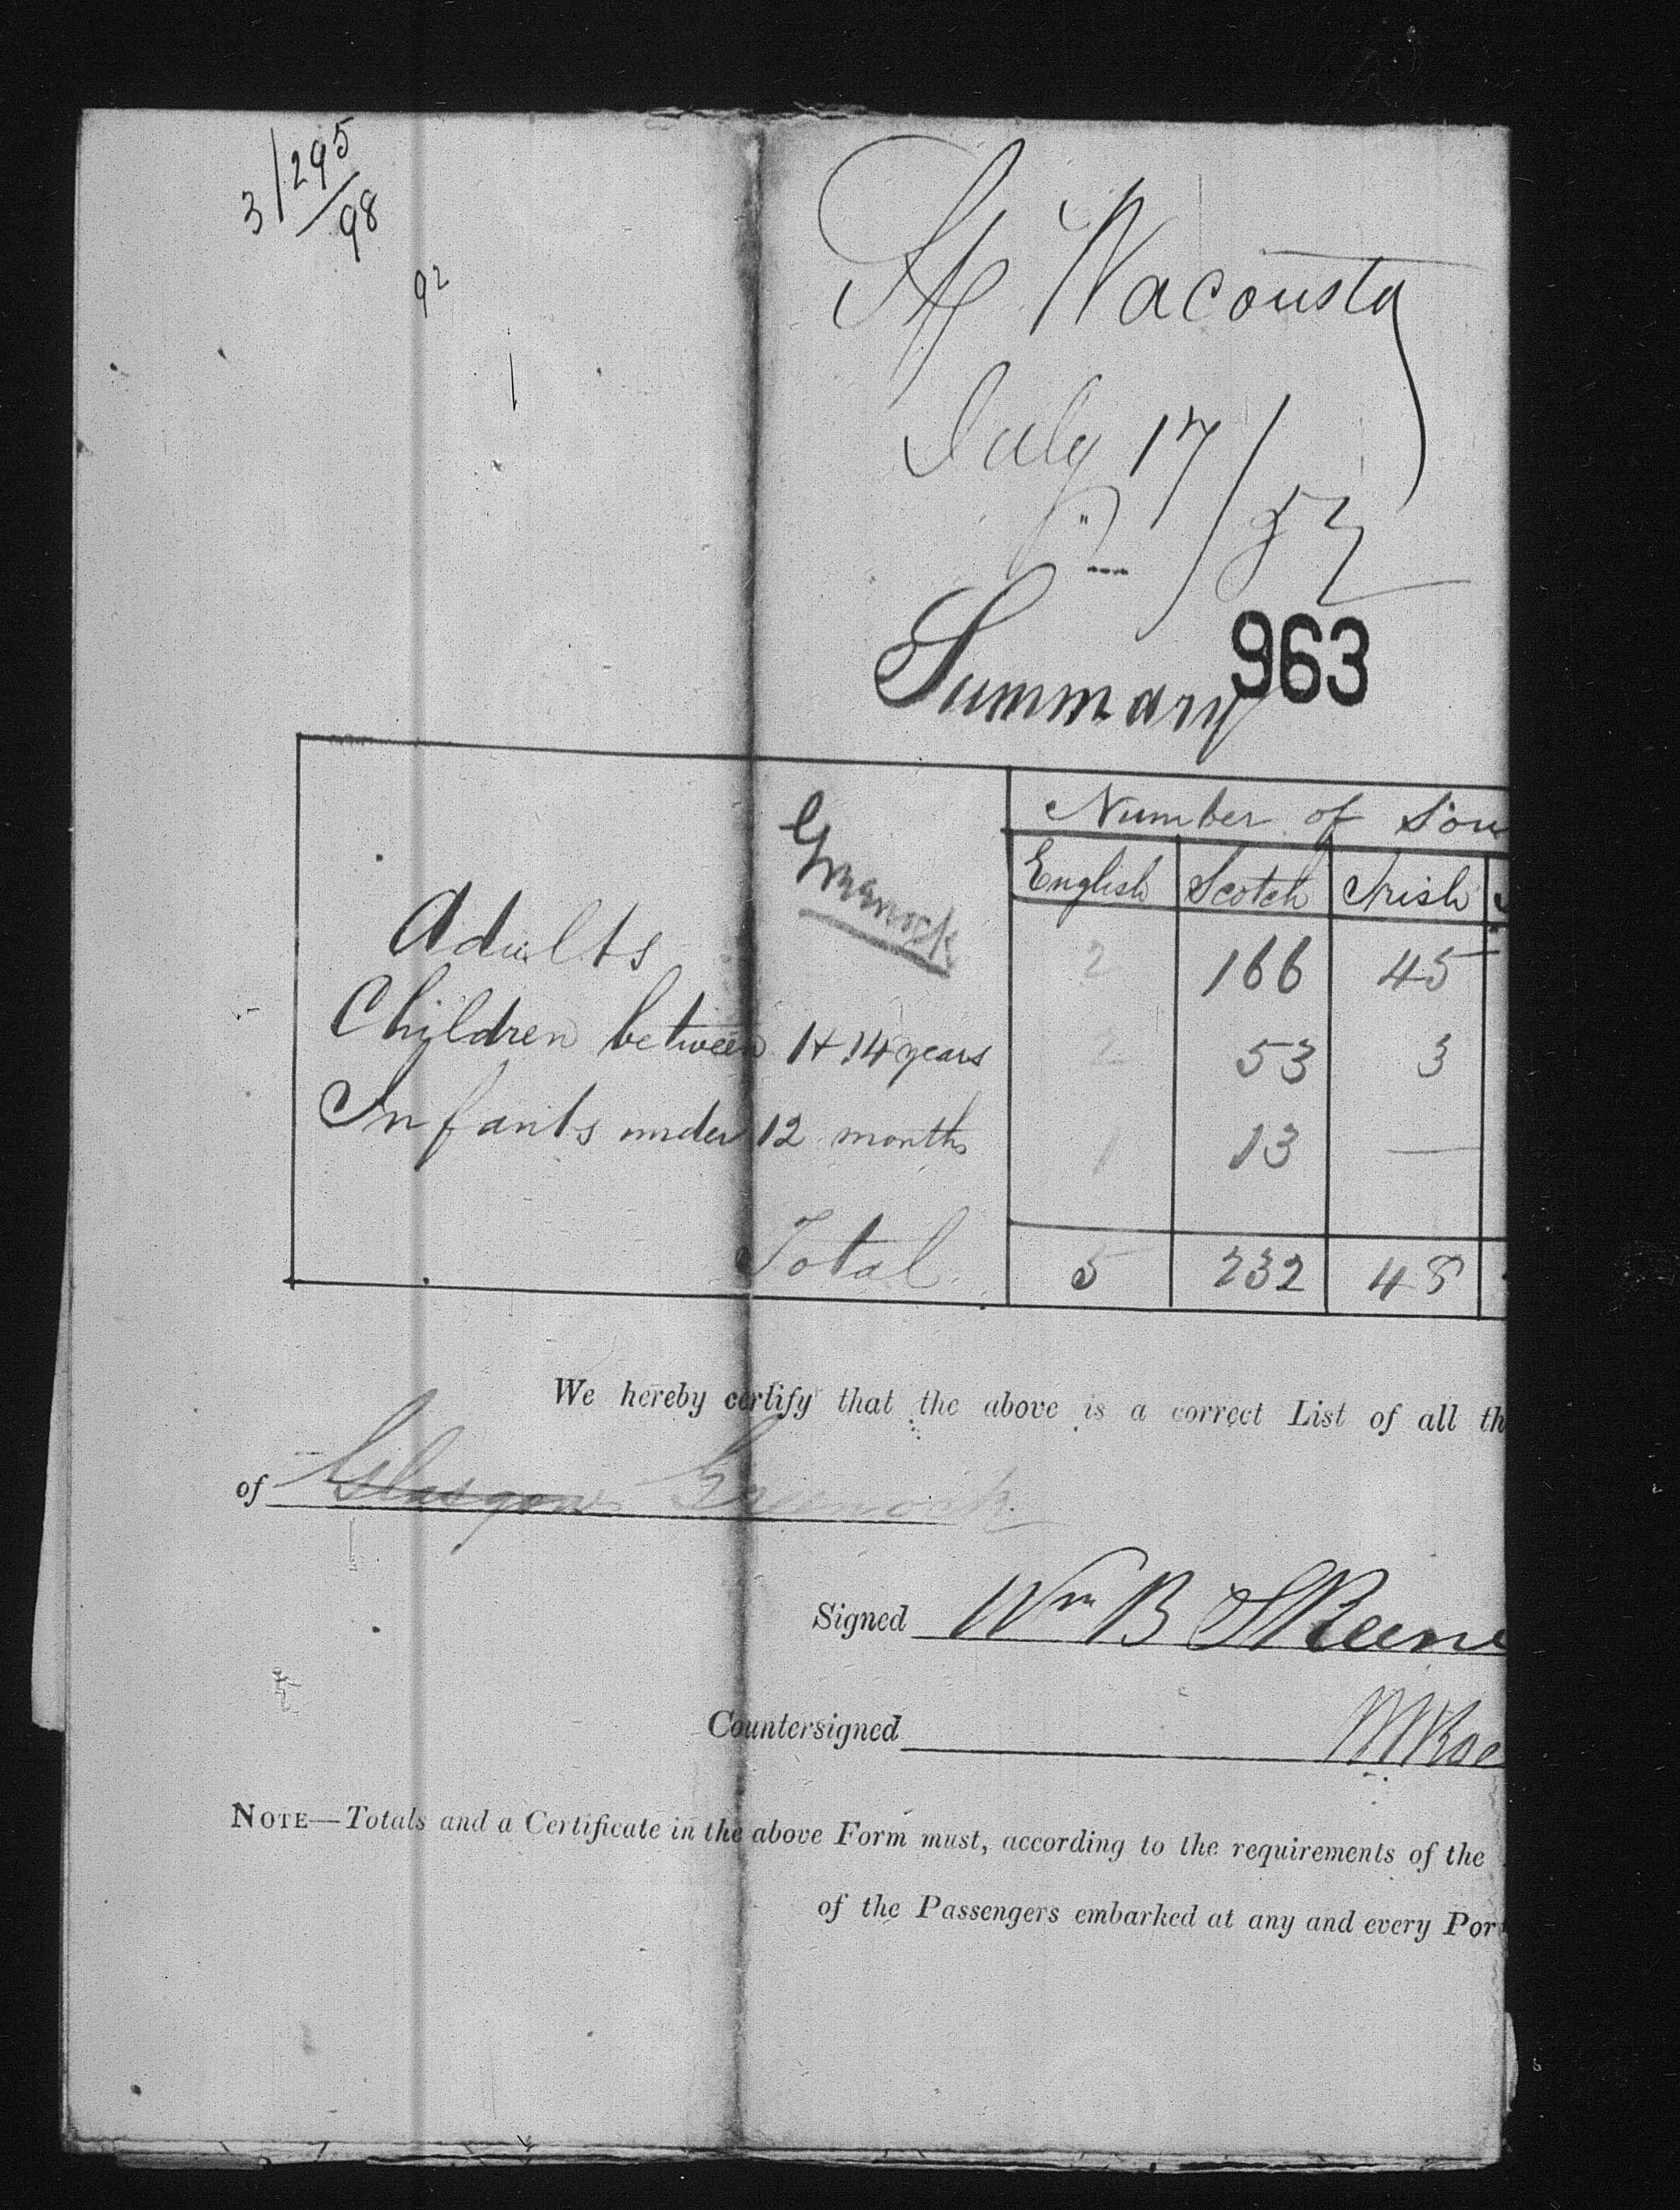 3/295
98
92
Wacousta
July 17/
52
963
Summary
Greenock
Number of Sou
English Scotch Irish
Adults 2 166 45
Children between 1 + 14 years 2 53 3
Infants under 12 months 1 13 —
Total 5 232 48
We hereby certify that the above is a correct List of all th
of Glasgow Greenock
Signed Wm B Skeene
Countersigned
NOTE—Totals and a Certificate in the above Form must, according to the requirements of the
of the Passengers embarked at any and every Por